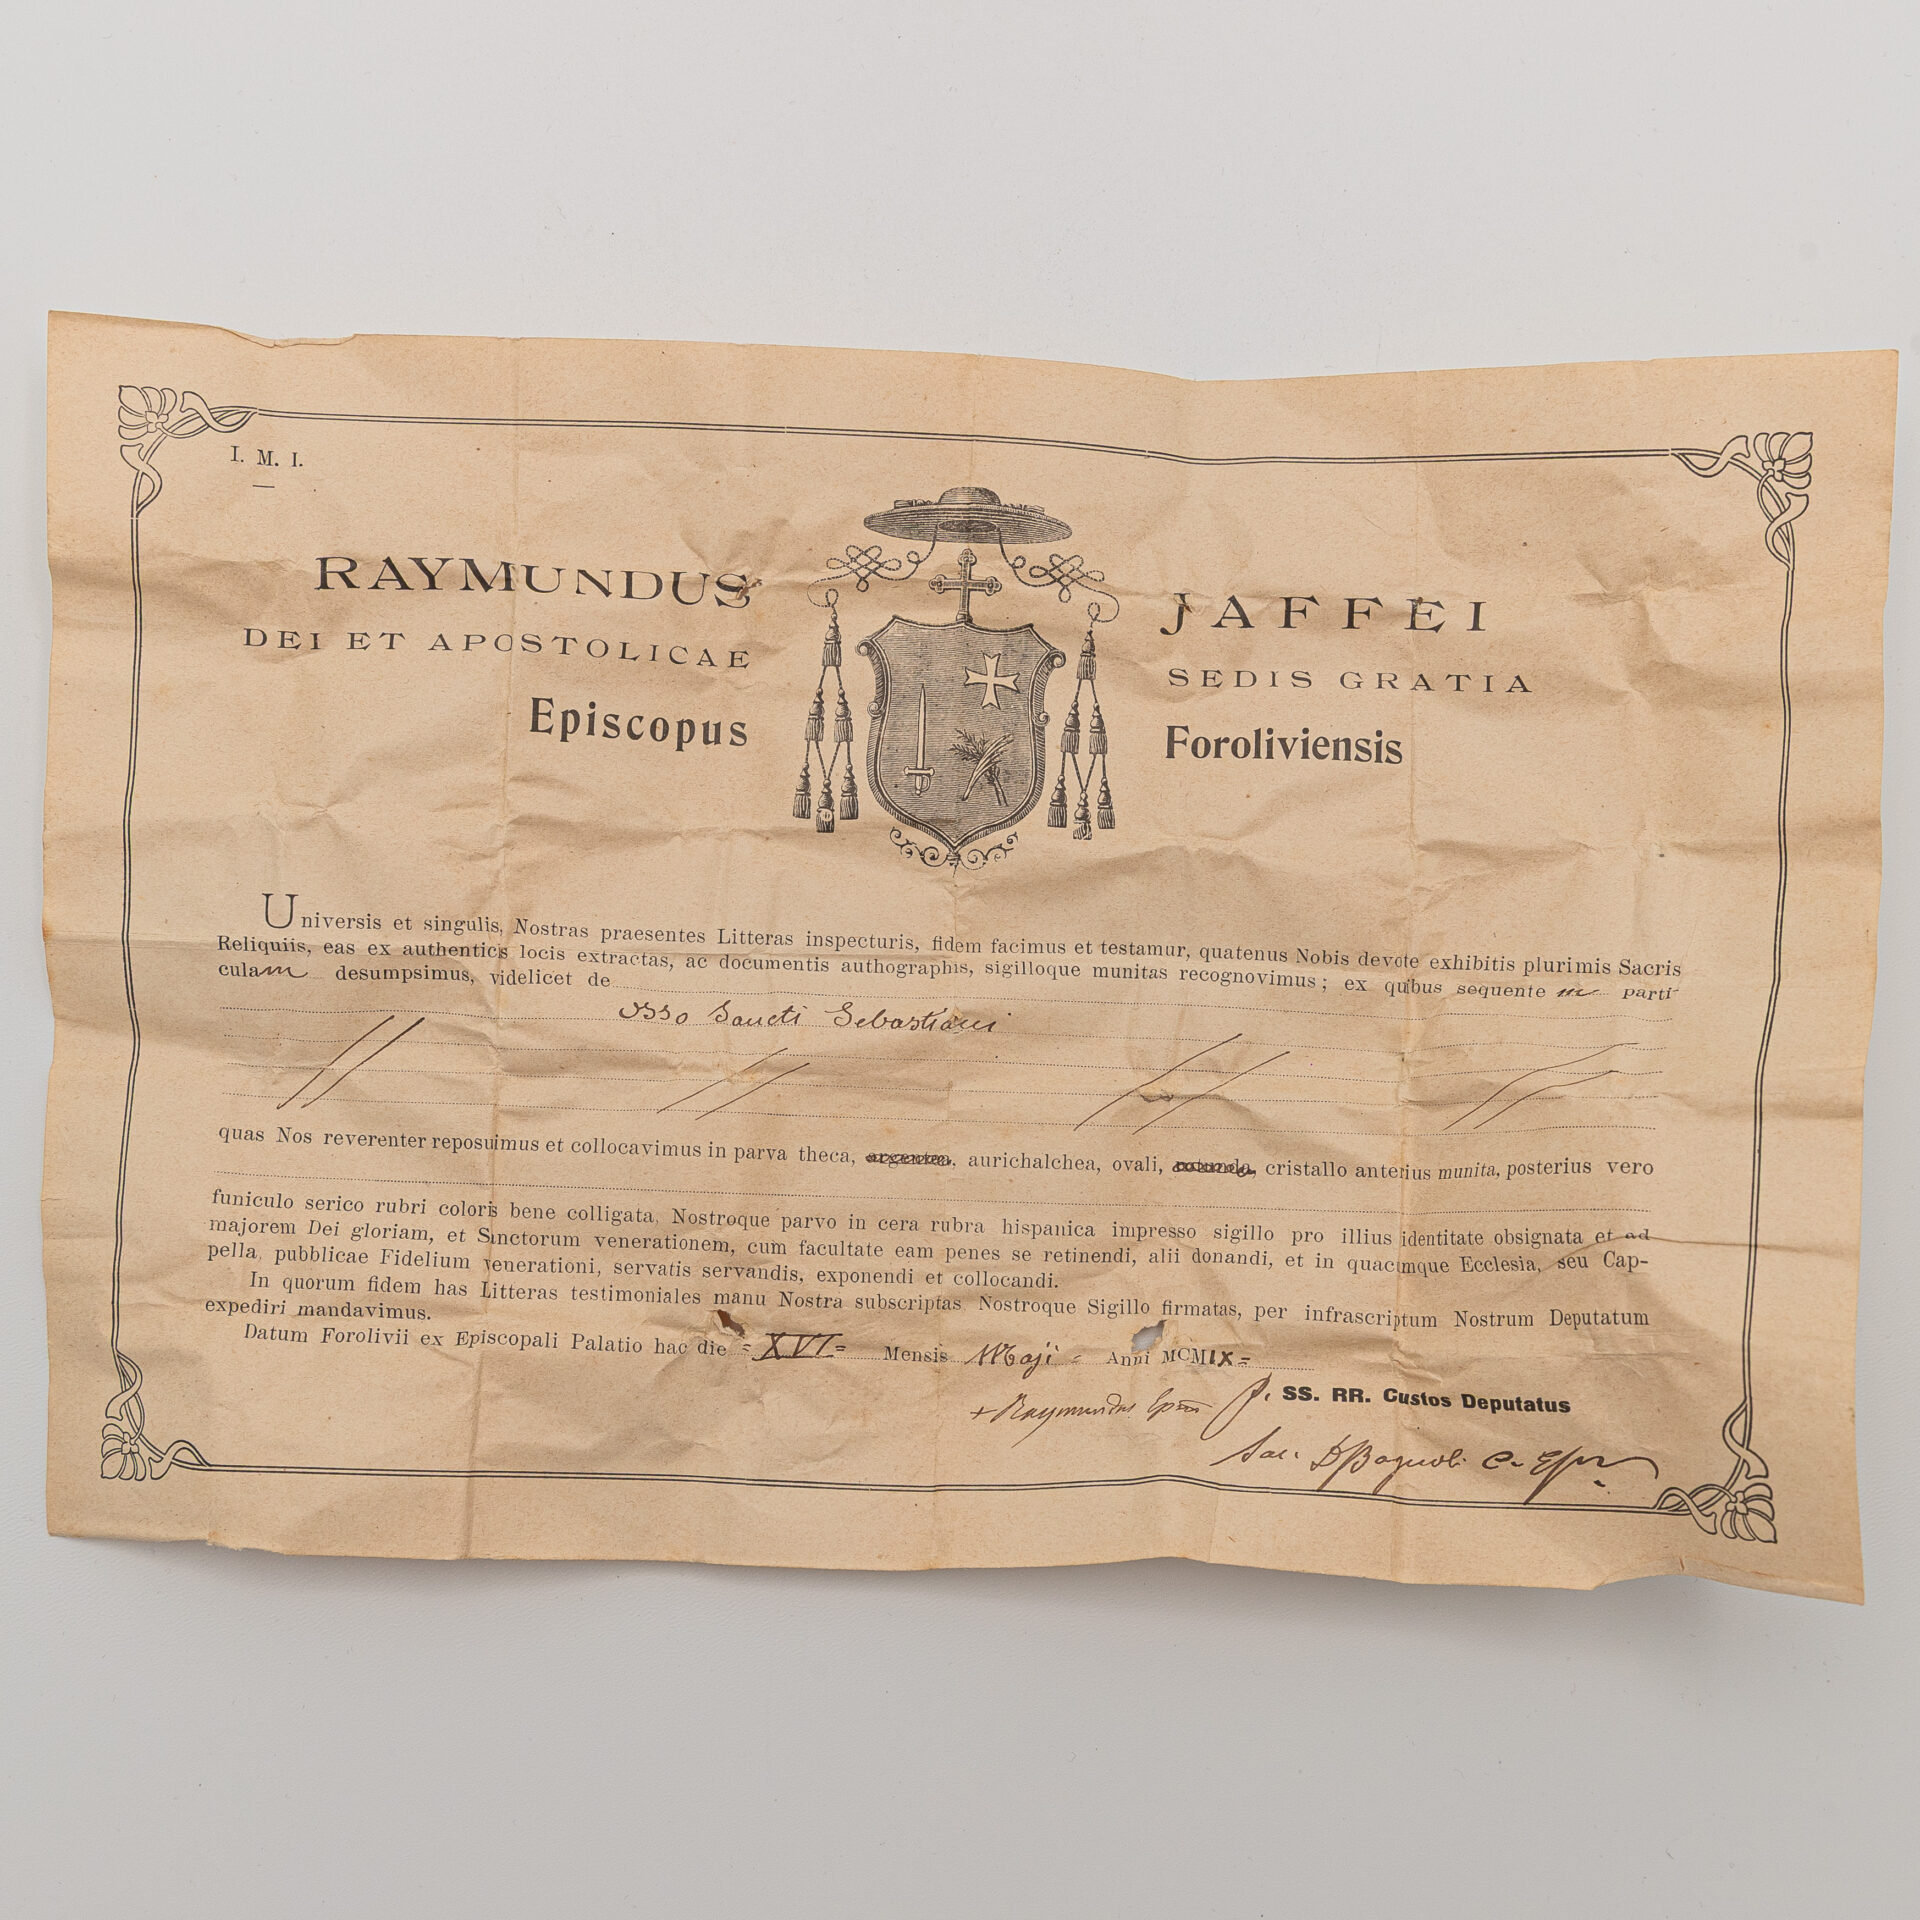 I. M. I.
RAYMUNDUS JAFFEI
DEI ET APOSTOLICAE SEDIS GRATIA
Episcopus Foroliviensis
Universis et singulis, Nostras praesentes Litteras inspecturis, fidem facimus et testamur, quatenus Nobis devote exhibitis plurimis Sacris
Reliquiis, eas ex authenticis locis extractas, ac documentis authographis, sigilloque munitas recognovimus; ex quibus sequentem parti
culam desumpsimus, videlicet de
Osso Sancti Sebastiani
quas Nos reverenter reposuimus et collocavimus in parva theca, argentea, aurichalchea, ovali, rotunda, cristallo anterius munita, posterius vero
funiculo serico rubri coloris bene colligata, Nostroque parvo in cera rubra hispanica impresso sigillo pro illius identitate obsignata et ad
majorem Dei gloriam, et Sanctorum venerationem, cum facultate eam penes se retinendi, alii donandi, et in quacumque Ecclesia, seu Cap-
pella, pubblicae Fidelium venerationi, servatis servandis, exponendi et collocandi.
In quorum fidem has Litteras testimoniales manu Nostra subscriptas Nostroque Sigillo firmatas, per infrascriptum Nostrum Deputatum
expediri mandavimus.
Datum Forolivii ex Episcopali Palatio hac die = XVI = Mensis Maji = Anni MCMIX =
+ Raymundus SS. RR. Custos Deputatus
Sac. Bagnoli C.